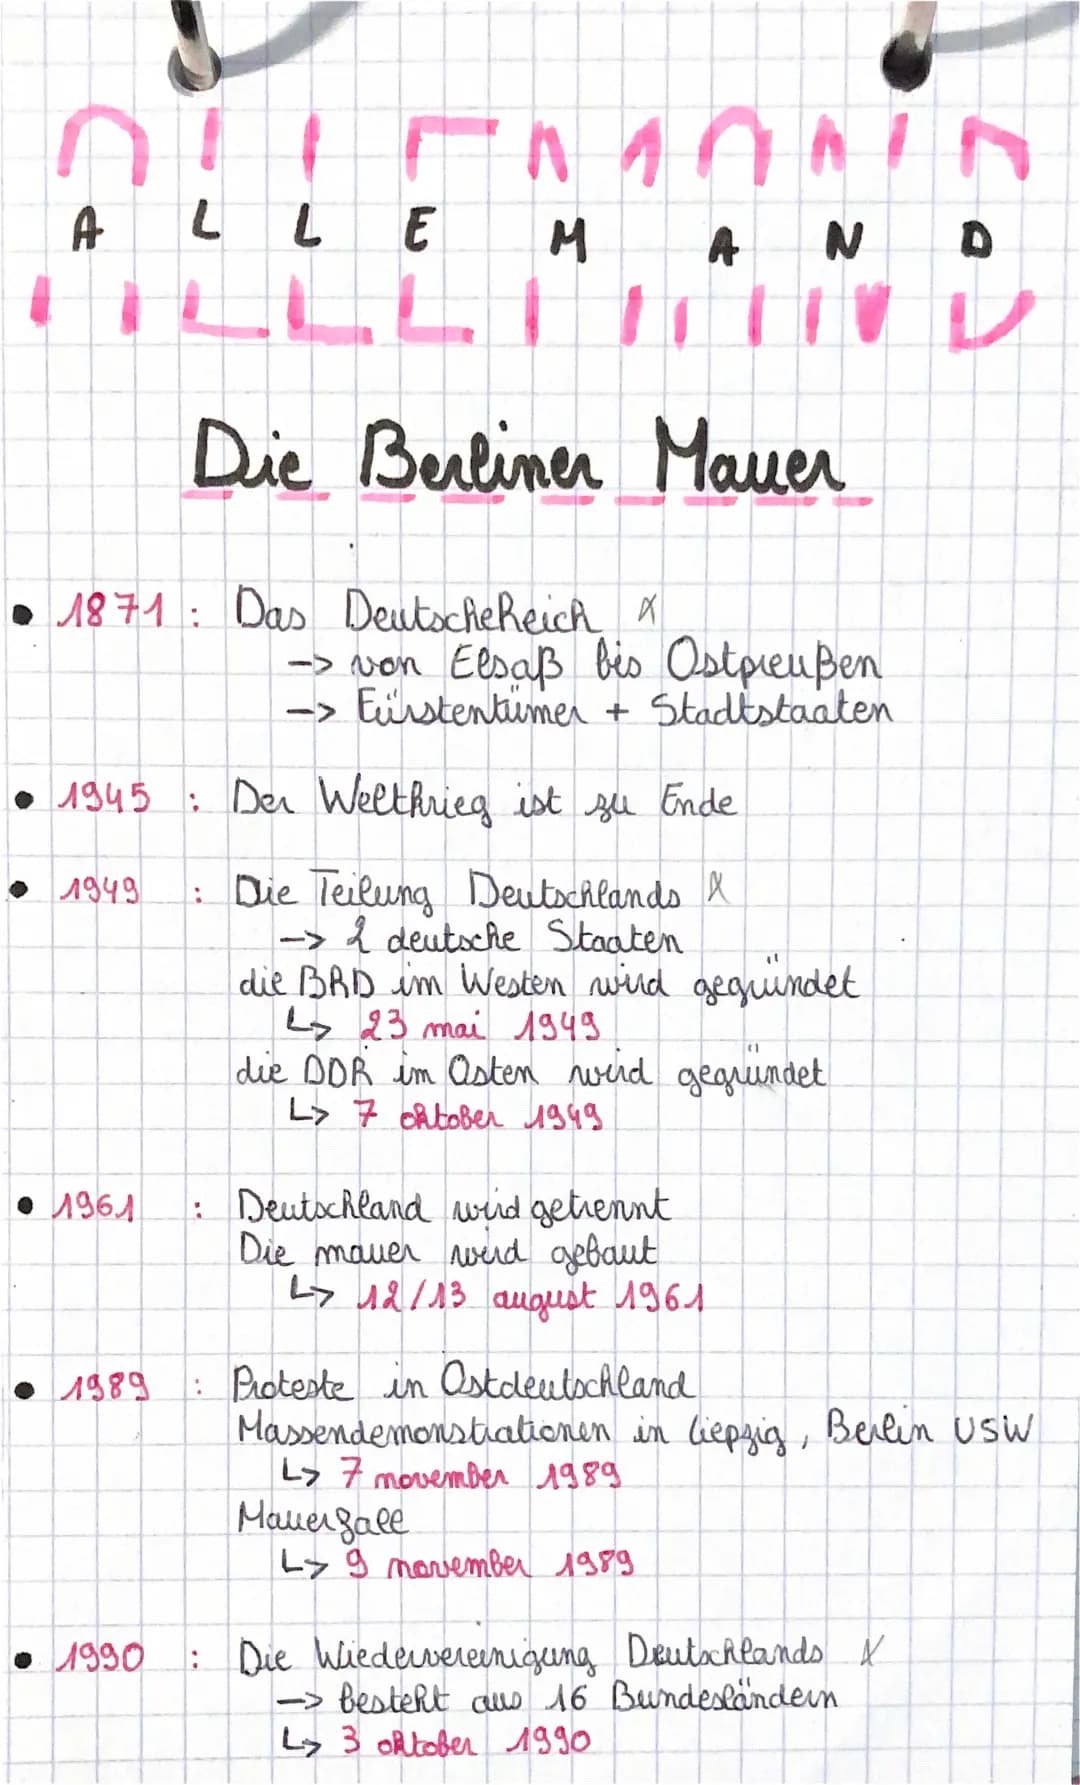 ALLEMAND
Die Berliner Mauer
• 1871 : Das DeutscheReich
-> von Elsaß bis Ostpreußen
-> Fürstentümer + Stadtstaaten
• 1945 : Der Weltkrieg ist zu Ende
• 1949 : Die Teilung Deutschlands
-> 2 deutsche Staaten
die BRD im Westen wird gegründet
↳ 23 mai 1949
die DDR im Osten wird gegründet
↳ 7 oktober 1949
• 1961 : Deutschland wird getrennt
Die mauer wird gebaut
↳ 12/13 august 1961
• 1989 : Proteste in Ostdeutschland
Massendemonstrationen in liepzig, Berlin USW
↳ 7 november 1989
Mauerfall
↳ 9 november 1989
• 1990 : Die Wiedervereinigung Deutschlands
-> besteht aus 16 Bundesländern
↳ 3 oktober 1990